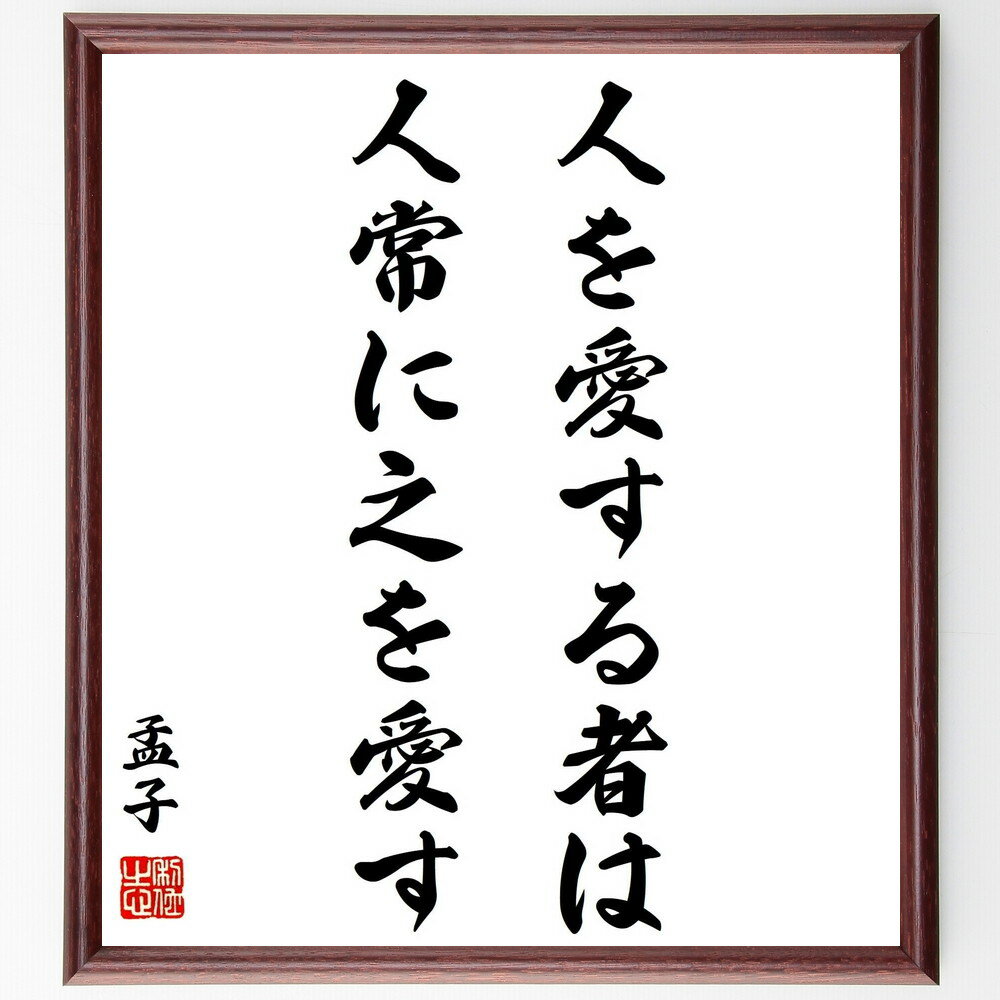 人を愛する者は
人常に之を愛す
孟子